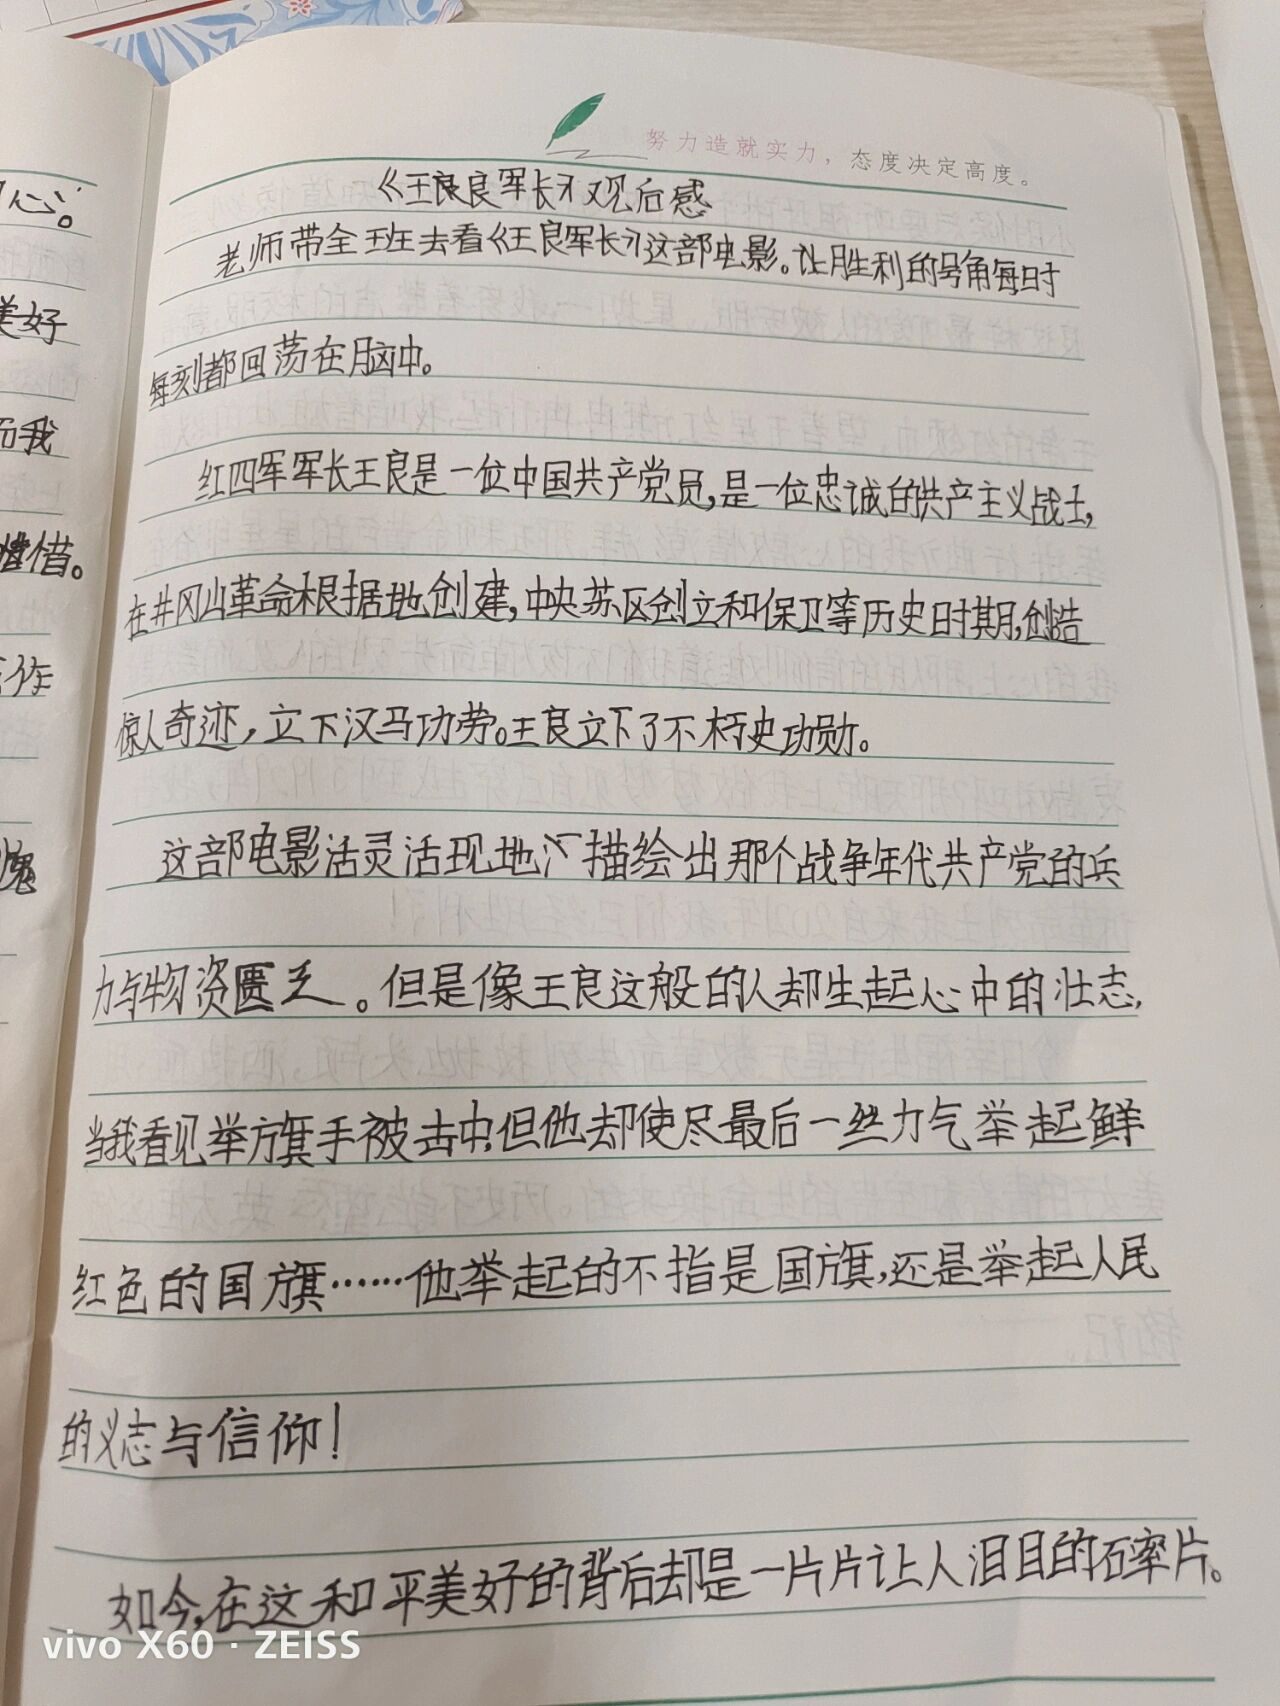 努力造就实力，态度决定高度。
《王良良军长》观后感
老师带全班去看《王良军长》这部电影。让胜利的号角每日时
每刻都回荡在脑中。
红四军军长王良是一位中国共产党员,是一位忠诚的共产主义战士,
在井冈山革命根据地创建,中央苏区创立和保卫等历史日时期,创造
惊人奇迹，立下汉马功劳。王良立下了不朽史功勋。
这部电影活灵活现地描绘出那个战争年代共产党的兵
力与物资匮乏。但是像王良这般的人却生起心中的壮志,
当我看见举旗手被击中,但他却使尽最后一丝力气举起鲜
红色的国旗……他举起的不指是国旗,还是举起人民
的义志与信仰！
如今,在这和平美好的背后却是一片片让人泪目的碎片。
心。
美好
而我
惜。
作
vivo X60 · ZEISS